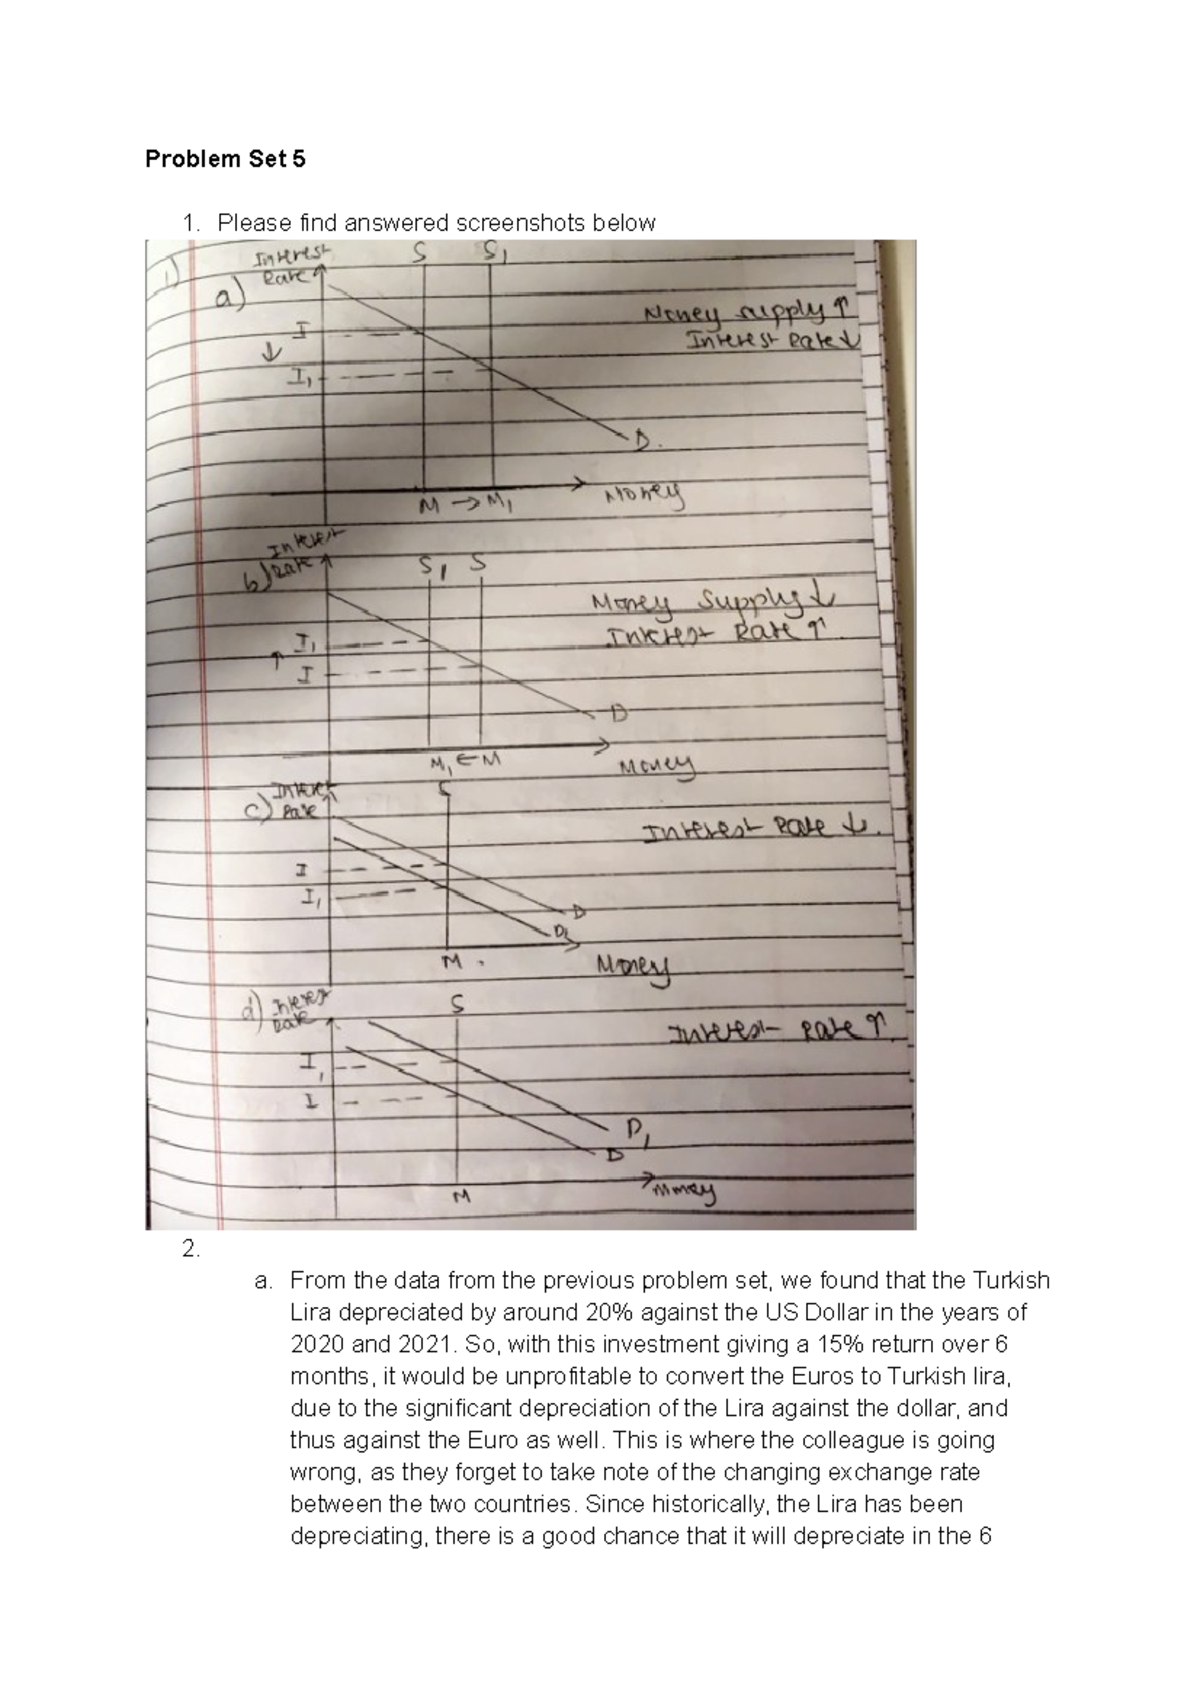 Problem Set 5
1. Please find answered screenshots below
1)
Interest
Rate
a)
S S1
I
↓
I1
Money supply ↑
Interest Rate ↓
D.
M → M1
Money
Interest
b) Rate
S1 S
Money Supply ↓
Interest Rate ↑
I1
↑
I
D
M1 ← M
Money
c) Rate
S
Interest Rate ↓.
I
I1
D
D1
M.
Money
d) Interest
Rate
S
Interest Rate ↑
I1
I
D1
D
M
Money
2.
a. From the data from the previous problem set, we found that the Turkish
Lira depreciated by around 20% against the US Dollar in the years of
2020 and 2021. So, with this investment giving a 15% return over 6
months, it would be unprofitable to convert the Euros to Turkish lira,
due to the significant depreciation of the Lira against the dollar, and
thus against the Euro as well. This is where the colleague is going
wrong, as they forget to take note of the changing exchange rate
between the two countries. Since historically, the Lira has been
depreciating, there is a good chance that it will depreciate in the 6